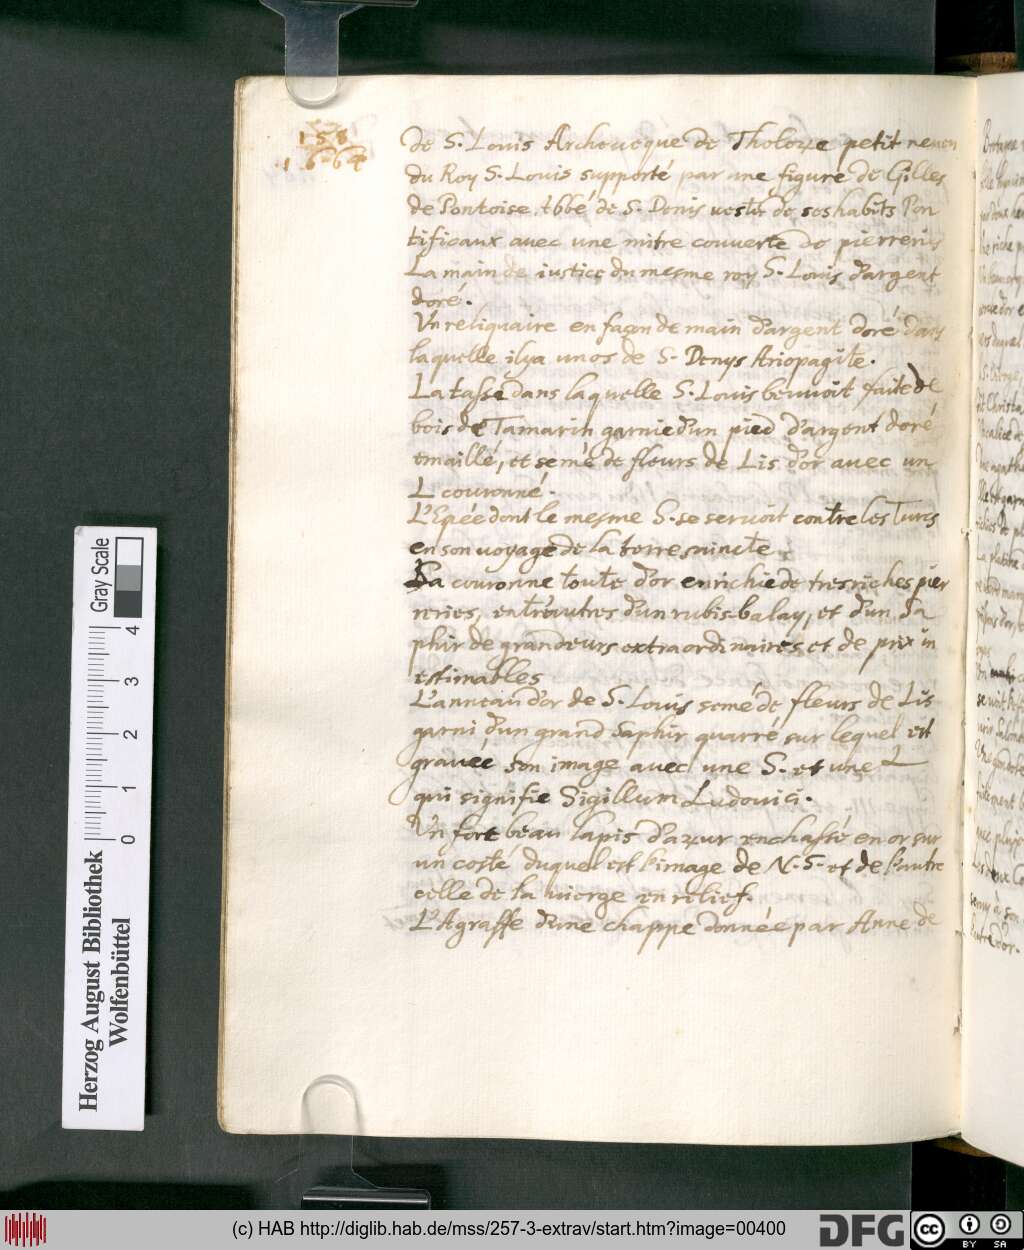 158
1664
de S. Louis Archeueque de Tholoze petit neueu
du Roy S. Louis supporté par une figure de Gilles
de Pontoise Abbé de S. Denis vestu de ses habits Pon
tificaux avec une mitre couverte de pierreries
La main de iustice du mesme roy S. Louis d'argent
doré.
Un reliquaire en façon de main d'argent doré dans
laquelle il y a un os de S. Denys Ariopagite.
La tasse dans laquelle S. Louis beuuoit faite de
bois de Tamarin garnie d'un pied d'argent doré
emaillé, et semé de fleurs de Lis d'or avec un
L couronné.
L'Epée dont le mesme S. se servoit contre les Turcs
en son voyage de la terre saincte.
Sa couronne toute d'or enrichie de tres riches pier
reries, entr'autres d'un rubis balay, et d'un Sa
phir de grandeurs extraordinaires et de prix in
estimables
L'anneau d'or de S. Louis semé de fleurs de Lis
garni d'un grand Saphir quarré sur lequel est
gravée son image avec une S. et une L
qui signifie Sigillum Ludovici.
Un fort beau lapis d'azur enchassé en or sur
un costé duquel est l'image de N. S. et de l'autre
celle de la vierge en relief.
L'Agraffe d'une chappe donnée par Anne de
Herzog August Bibliothek
Wolfenbüttel
Gray Scale
0 1 2 3 4
(c) HAB http://diglib.hab.de/mss/257-3-extrav/start.htm?image=00400
DFG
cc BY SA